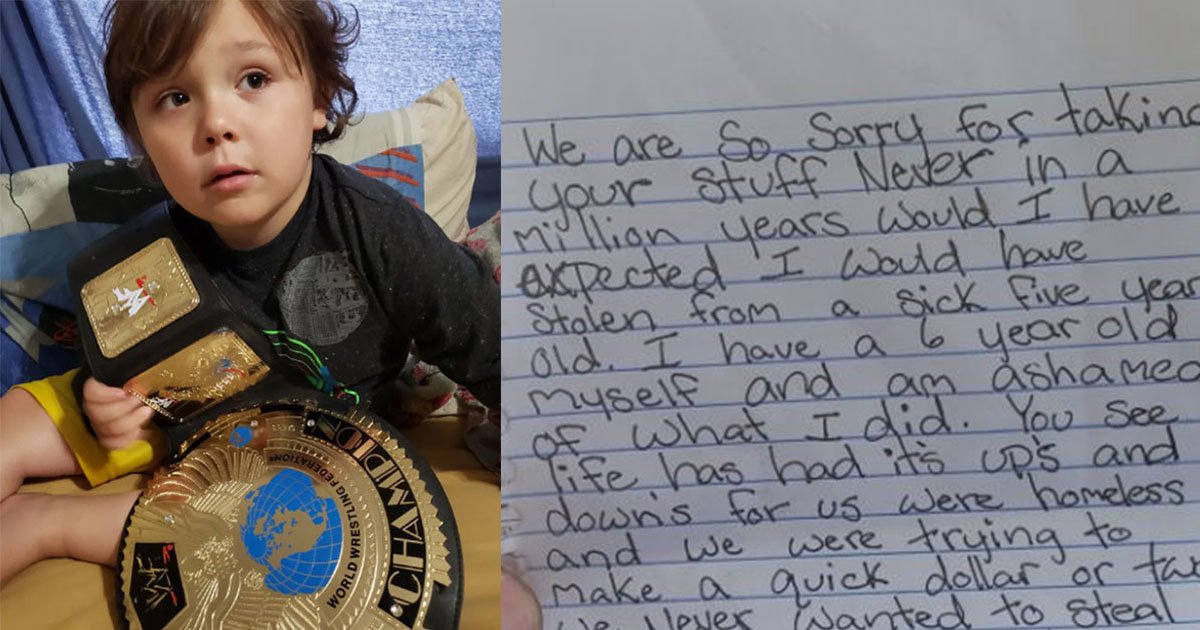 WORLD WRESTLING FEDERATION
CHAMPION
We are So Sorry for taking
your stuff Never in a
million years would I have
expected I would have
stolen from a sick five year
old. I have a 6 year old
myself and am ashamed
of what I did. You see
life has had it's up's and
down's for us were homeless
and we were trying to
make a quick dollar or
we Never wanted to steal